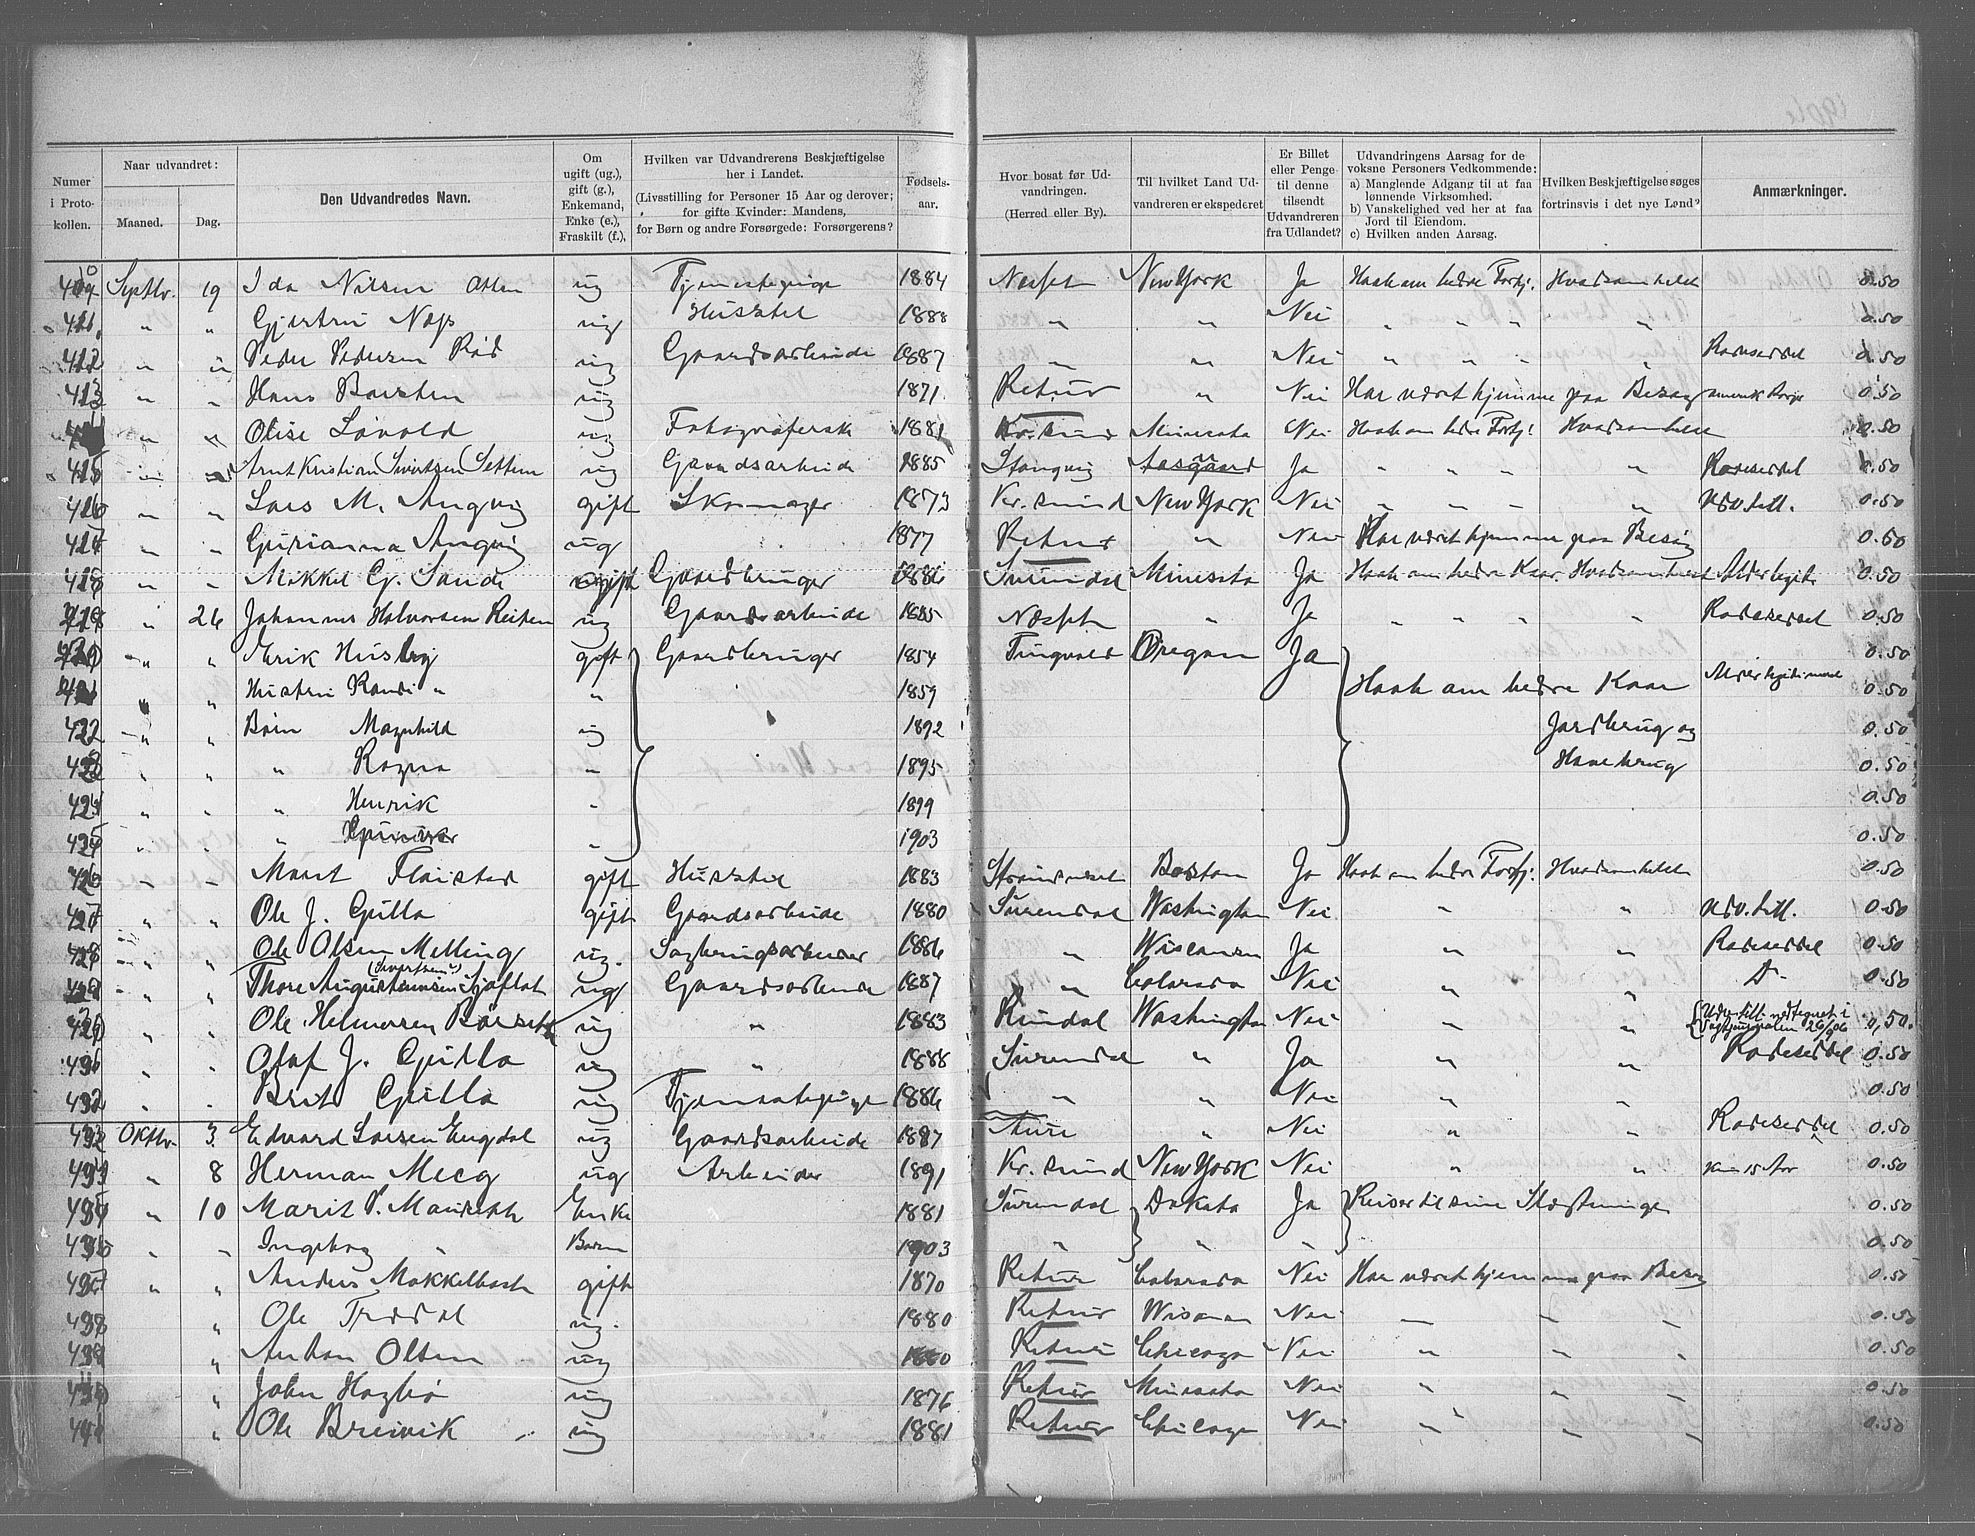 Numer i Protokollen.
Naar udvandret:
Maaned.
Dag.
Den Udvandredes Navn.
Om ugift (ug.), gift (g.), Enkemand, Enke (e.), Fraskilt (f.),
Hvilken var Udvandrerens Beskjæftigelse her i Landet.
(Livsstilling for Personer 15 Aar og derover; for gifte Kvinder: Mandens, for Børn og andre Forsørgede: Forsørgerens?
Fødselsaar.
Hvor bosat før Udvandringen.
(Herred eller By).
Til hvilket Land Udvandreren er ekspederet
Er Billet eller Penge til denne tilsendt Udvandreren fra Udlandet?
Udvandringens Aarsag for de voksne Personers Vedkommende:
a) Manglende Adgang til at faa lønnende Virksomhed.
b) Vanskelighed ved her at faa Jord til Eiendom.
c) Hvilken anden Aarsag.
Hvilken Beskjæftigelse søges fortrinsvis i det nye Land?
Anmærkninger.
Septbr. 19 Ida Nilsen ug Tjenestepige 1884 Nesset NewYork Ja Haab om bedre Fortj. Hvadsomhelst 0.50
411 " " Gjertru Næs ug Husstel 1888 " " Nei " " " " 0.50
412 " " Peder Pedersen Rød ug Gaardsarbeide 1887 " " Nei " " " " Rodeseddel 0.50
413 " " Hans ug 1871 Retur " Nei Har været hjemme paa Besøg 0.50
" " Olise Løvold ug Fotograferske 1881 Kr.sund Minesota Nei Haab om bedre Fortj. Hvadsomhelst 0.50
415 " " Arnt Kristian Sivertsen Settem ug Gaardsarbeide 1885 Stangvig Ja " " " " Rodeseddel 0.50
416 " " Lars M. Angvig gift Skomager 1873 Kr.sund NewYork Nei " " " " Udv. till. 0.50
417 " " Gurianna Angvig ug 1877 Retur " Nei Har været hjemme paa Besøg 0.50
418 " " Mikkel G. Sande gift Gaardbruger 1886 Surendal Minesota Ja Haab om bedre Kaar Hvadsomhelst 0.50
419 " 26 Johannes Halvorsen Reiten ug Gaardsarbeide 1885 Nesset " Ja " " " " Rodeseddel 0.50
" " Erik Husby gift Gaardbruger 1854 Tingvold Oregon Ja 0.50
" " Hustru Randi " " 1859 Haab om bedre Kaar 0.50
422 " " Børn Magnhild ug 1892 Jordbrug og 0.50
423 " " " Ragna " 1895 Havebrug 0.50
424 " " " Henrik " 1899 0.50
425 " " " " 1903 0.50
426 " " Marit gift Husstel 1883 Boston Ja Haab om bedre Fortj. Hvadsomhelst 0.50
427 " " Ole J. Gulla gift Gaardsarbeide 1880 Surendal Washington Nei " " Udv. till. 0.50
428 " " Ole Olsen Melling ug. Sagbrugsarbeider 1886 " Wisconsin Ja " " Rodeseddel 0.50
429 " " Thore Augustinussen (Sivertsen) Sjøflot ug Gaardsarbeide 1887 " Colorado Nei " " D- 0.50
" " Ole Helmersen ug " 1883 Rindal Washington Nei " " Udv. till. 0,50.
" " Olaf J. Gulla ug " 1888 Surendal " Ja " " Rodeseddel 0.50
432 " " Brit Gulla ug Tjenestepige 1886 " " Nei " " 0.50
Oktbr. 3 Edvard Larsen Engdal ug Gaardsarbeide 1887 Aure " Nei " " Rodeseddel 0.50
434 " 8 Herman Mecg ug Arbeider 1891 Kr.sund NewYork Nei " " 15 Aar 0.50
435 " 10 Marit P. Enke 1881 Surendal Dakota Ja Reiser til sine Slægtninge 0.50
436 " " Ingeborg " Barn 1903 " " " 0.50
437 " " Anders Mokkelbost gift 1870 Retur Colorado Nei Har været hjemme paa Besøg 0.5
438 " Ole Tredal ug. 1880 Retur Nei 0.50
439 " Anton Olsen ug 1880 Retur Chicago Nei " " " 0.50
" John Hagbø ug 1876 Retur Minesota Nei " 0.50
441 " Ole Breivik ug 1881 Retur Chicago Nei " 0.50